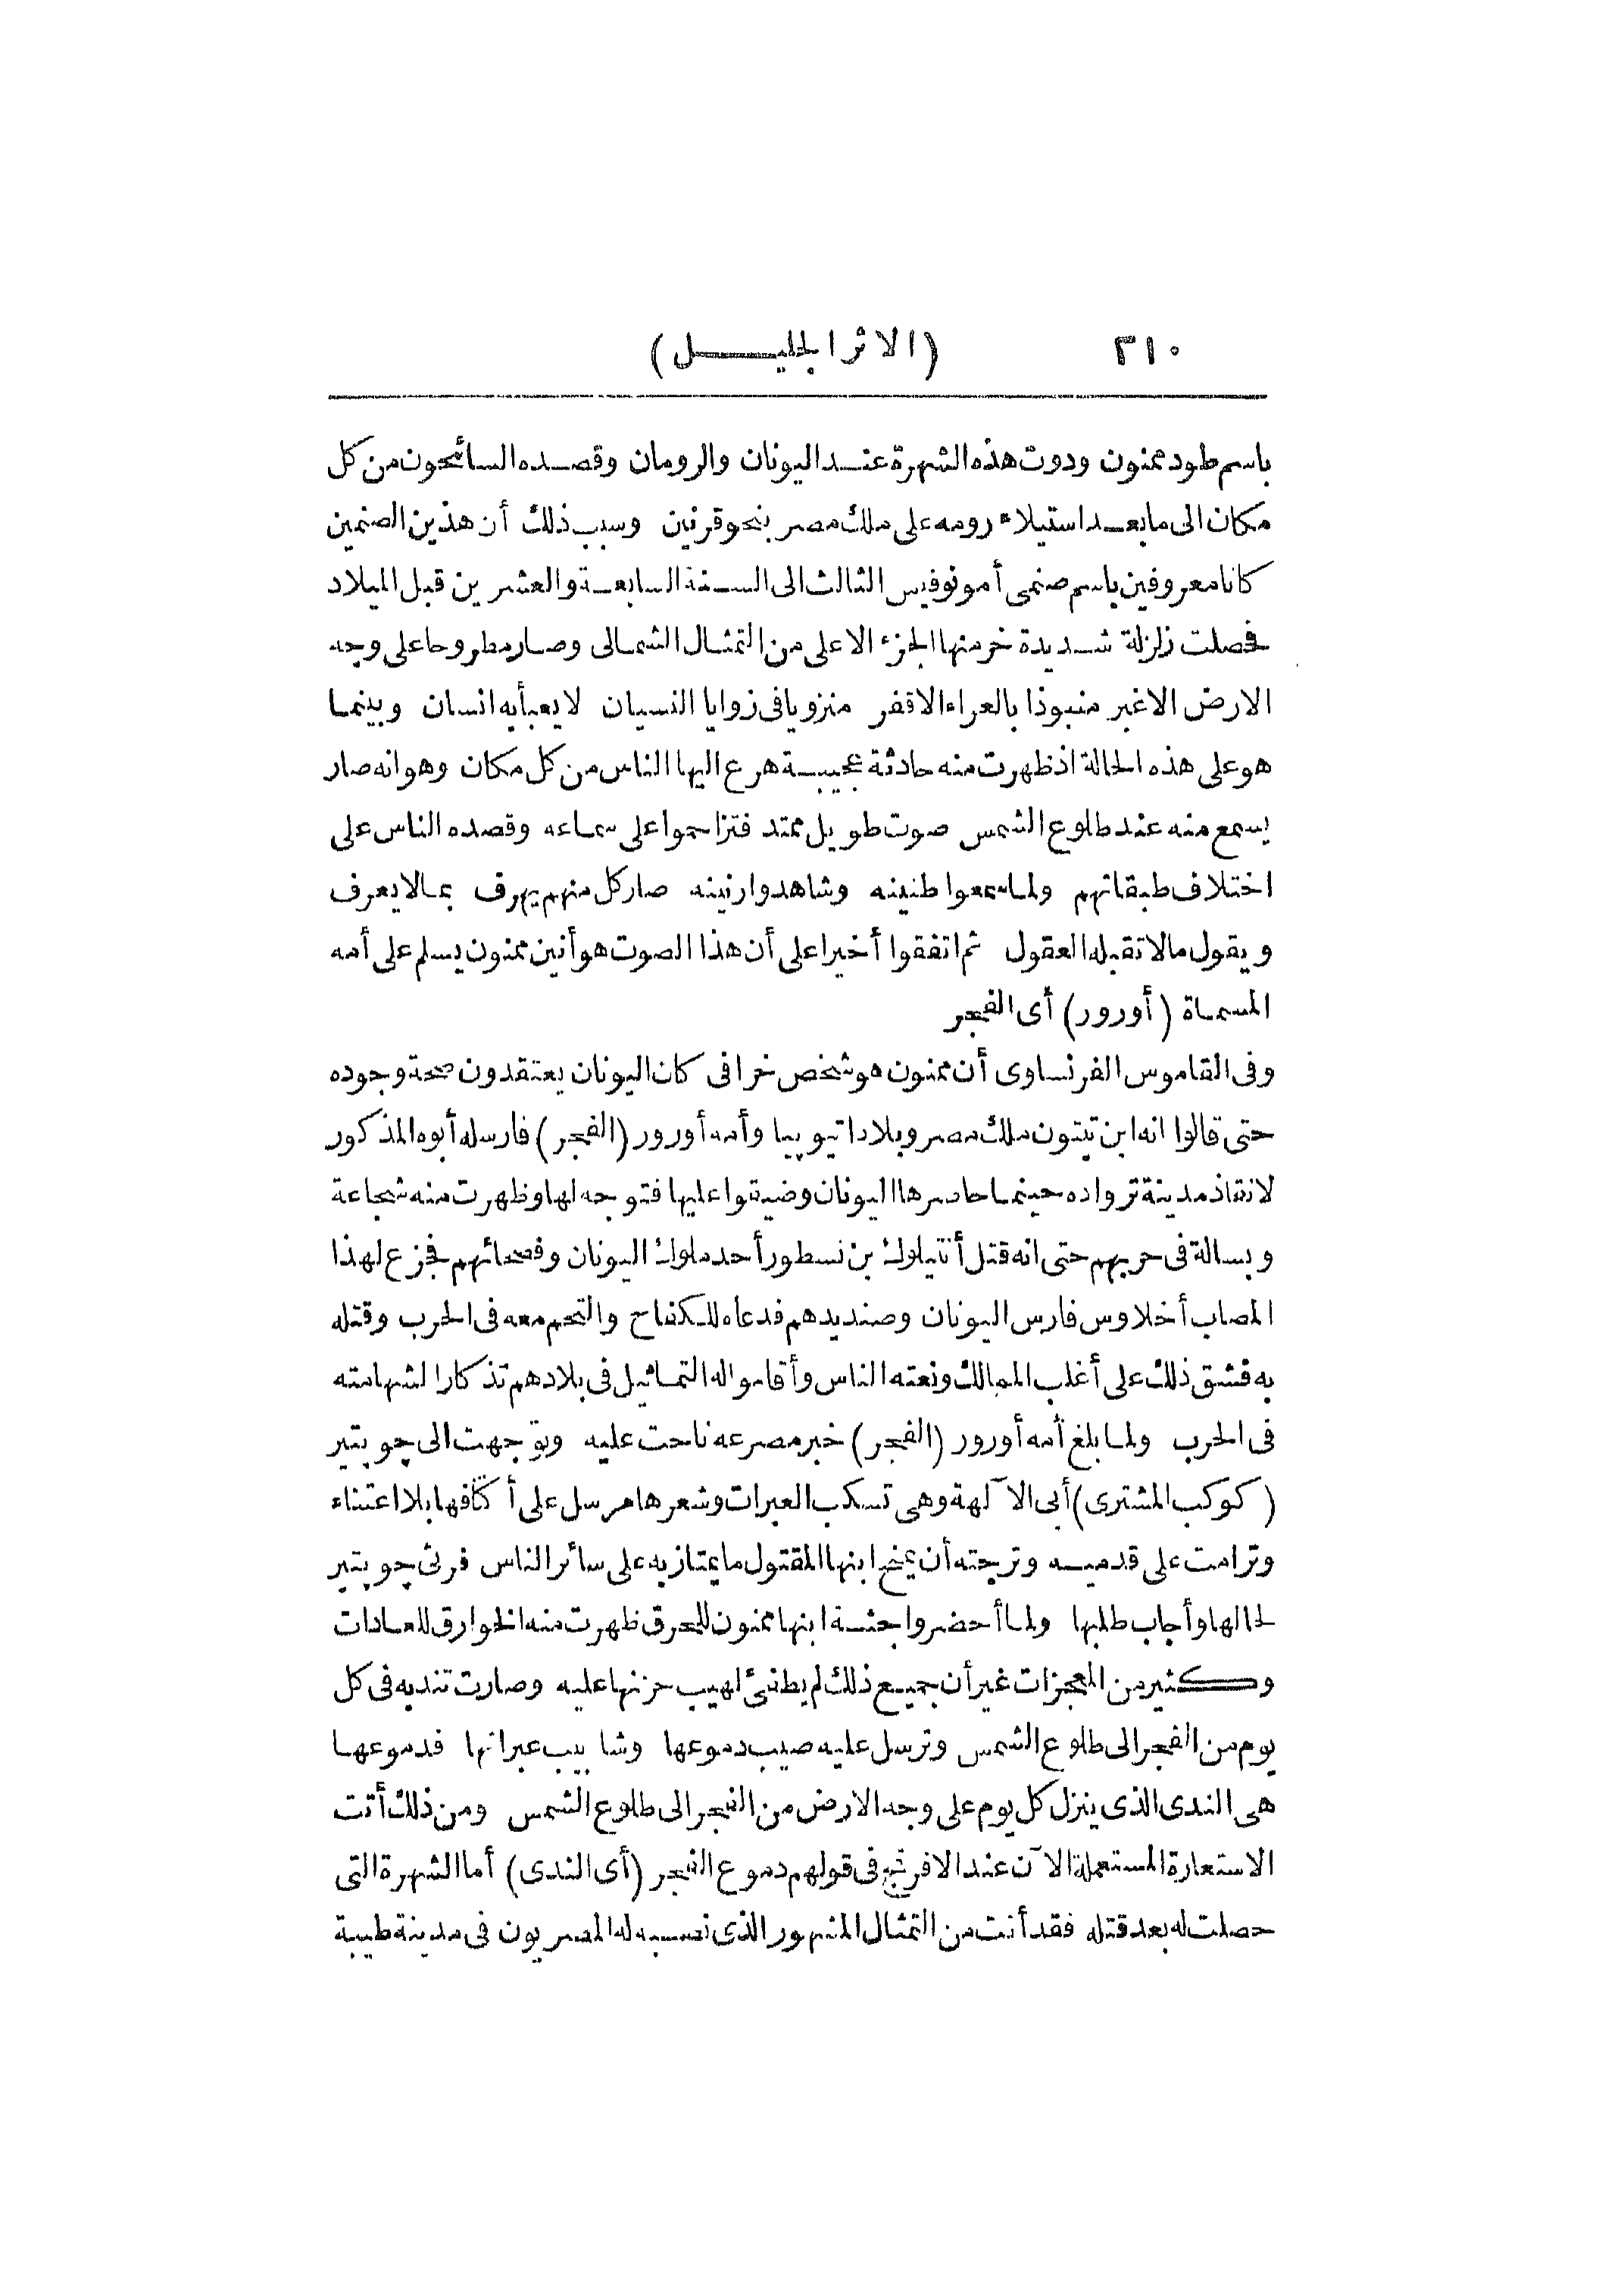 ٢١٠ (الاثر الجليل)
باسم طود ممنون ودوت هذه الشهرة عند اليونان والرومان وقصده السائحون من كل
مكان الى ما بعد استيلاء رومه على ملك مصر بنحو قرنين وسبب ذلك أن هذين الصنمين
كانا معروفين باسم صنمى أمونوفيس الثالث الى السنة السابعة والعشرين قبل الميلاد
فحصلت زلزلة شديدة خر منها الجزء الاعلى من التمثال الشمالى وصار مطروحا على وجه
الارض الاغبر منبوذا بالعراء الاقفر منزويا فى زوايا النسيان لا يعبأ به انسان وبينما
هو على هذه الحالة اذ ظهرت منه حادثة عجيبة هرع اليها الناس من كل مكان وهو انه صار
يسمع منه عند طلوع الشمس صوت طويل ممتد فتزاحموا على سماعه وقصده الناس على
اختلاف طبقاتهم ولما سمعوا طنينه وشاهدوا رنينه صار كل منهم يهرف بما لا يعرف
ويقول مالا تقبله العقول ثم اتفقوا أخيرا على أن هذا الصوت هو أنين ممنون يسلم على أمه
المسماة (أورور) أى الفجر
وفى القاموس الفرنساوى أن ممنون هو شخص خرافى كان اليونان يعتقدون صحة وجوده
حتى قالوا انه ابن تيتون ملك مصر وبلاد اتيوپيا وأمه أورور (الفجر) فارسله أبوه المذكور
لانقاذ مدينة ترواده حينما حاصرها اليونان وضيقوا عليها فتوجه لها وظهرت منه شجاعة
وبسالة فى حربهم حتى انه قتل أنتيلوك بن نسطور أحد ملوك اليونان وفصحائهم فجزع لهذا
المصاب أخلاوس فارس اليونان وصنديدهم فدعاه للكفاح والتحم معه فى الحرب وقتله
به فشق ذلك على أغلب الممالك ونعته الناس وأقاموا له التماثيل فى بلادهم تذكارا لشهامته
فى الحرب ولما بلغ أمه أورور (الفجر) خبر مصرعه ناحت عليه وتوّجهت الى چوپتير
(كوكب المشترى) أبى الآلهة وهى تسكب العبرات وشعرها مرسل على أكتافها بلا اعتناء
وترامت على قدميه وترجته أن يمنح ابنها المقتول ما يمتاز به على سائر الناس فرثى چوپتير
لحالها وأجاب طلبها ولما أحضروا جثة ابنها ممنون للحرق ظهرت منه الخوارق للعادات
وكثير من المعجزات غير أن جميع ذلك لم يطفئ لهيب حزنها عليه وصارت تندبه فى كل
يوم من الفجر الى طلوع الشمس وترسل عليه صيب دموعها وشابيب عبراتها فدموعها
هى الندى الذى ينزل كل يوم على وجه الارض من الفجر الى طلوع الشمس ومن ذلك أتت
الاستعارة المستعملة الآن عند الافرنج فى قولهم دموع الفجر (أى الندى) أما الشهرة التى
حصلت له بعد قتله فقد أتت من التمثال المشهور الذى نصبه له المصريون فى مدينة طيبة